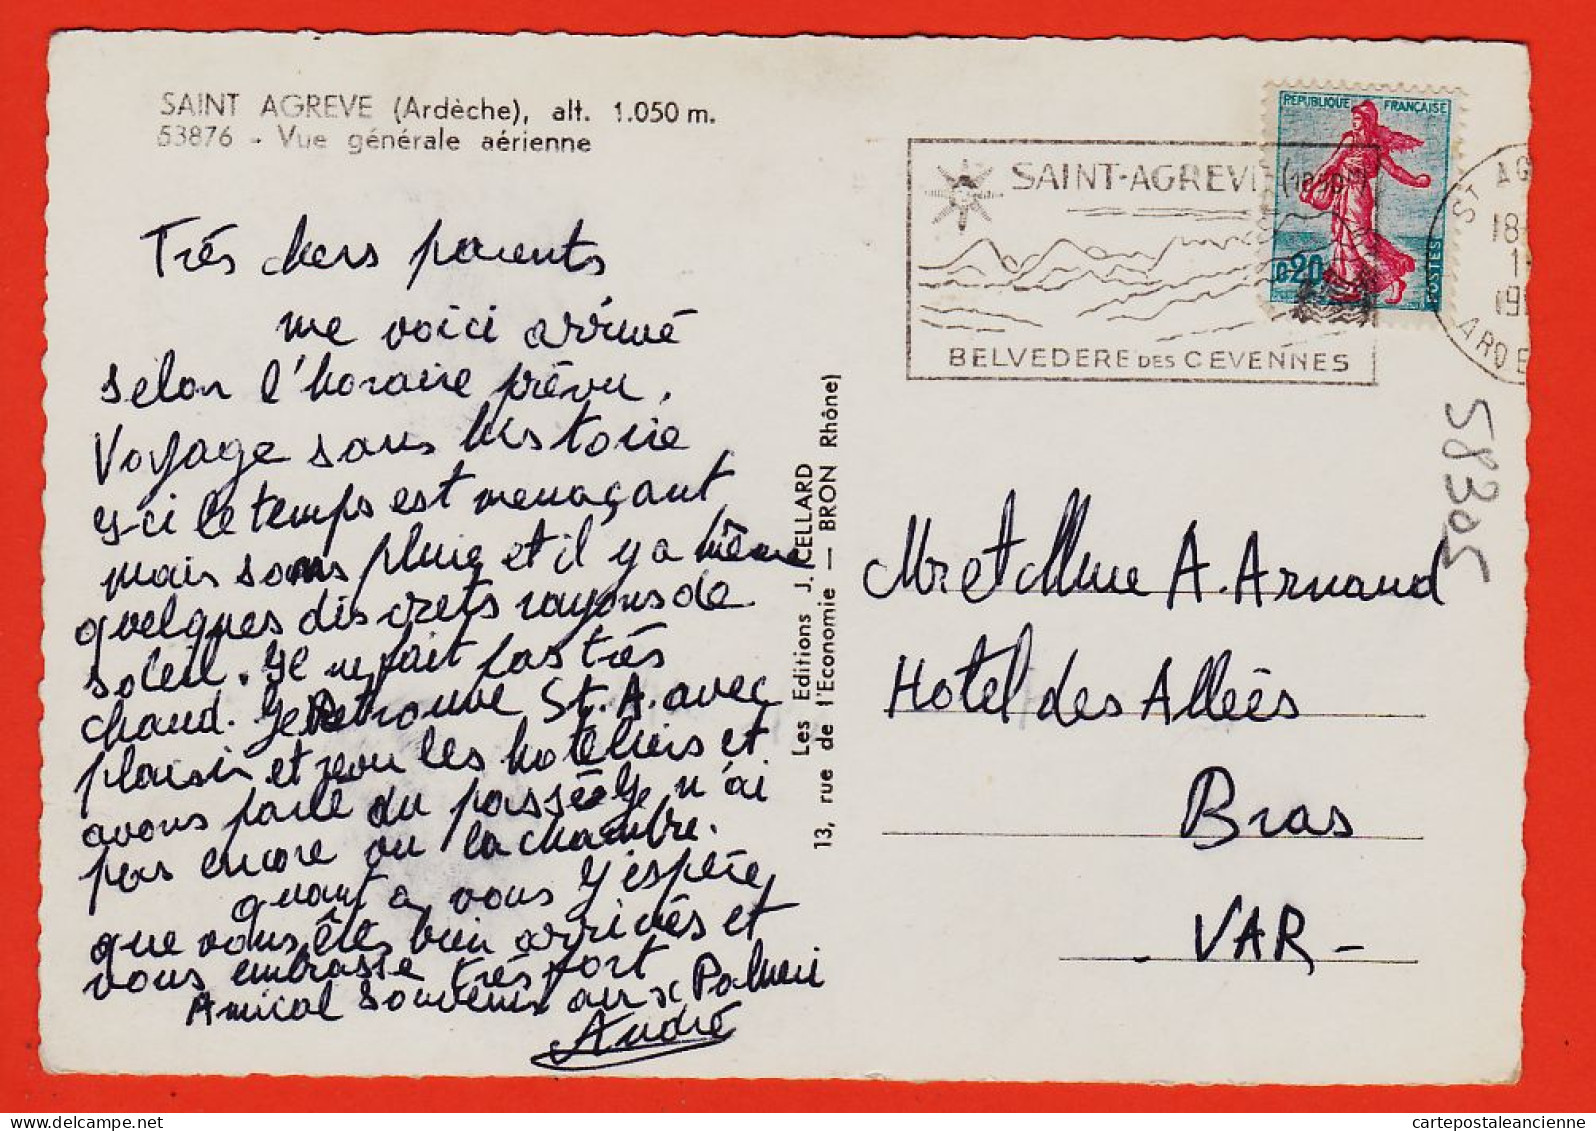 SAINT AGREVE (Ardèche), alt. 1.050 m.
53876 - Vue générale aérienne
Très chers parents
me voici arrivé
selon l'horaire prévu.
Voyage sans histoire
y-ci le temps est menaçant
mais sans pluie et il y a même
quelques discrets rayons de
soleil. Il ne fait pas très
chaud. Je Retrouve St. A. avec
plaisir et les hoteliers et
avons parlé du passé. Je n'ai
pas encore vu la chambre.
quant a vous J'espère
que vous êtes bien arrivés et
vous embrasse très fort
Amical souvenir aux Palmeri
André
Les Editions J. CELLARD
13, rue de l'Economie — BRON Rhône)
SAINT-AGREVE
BELVEDERE DES CEVENNES
REPUBLIQUE FRANÇAISE
0,20
POSTES
ST AG
18-
1
19
ARDE
58305
Mr et Mme A. Arnaud
Hotel des Allées
Bras
- VAR -
cartepostaleancienne.com